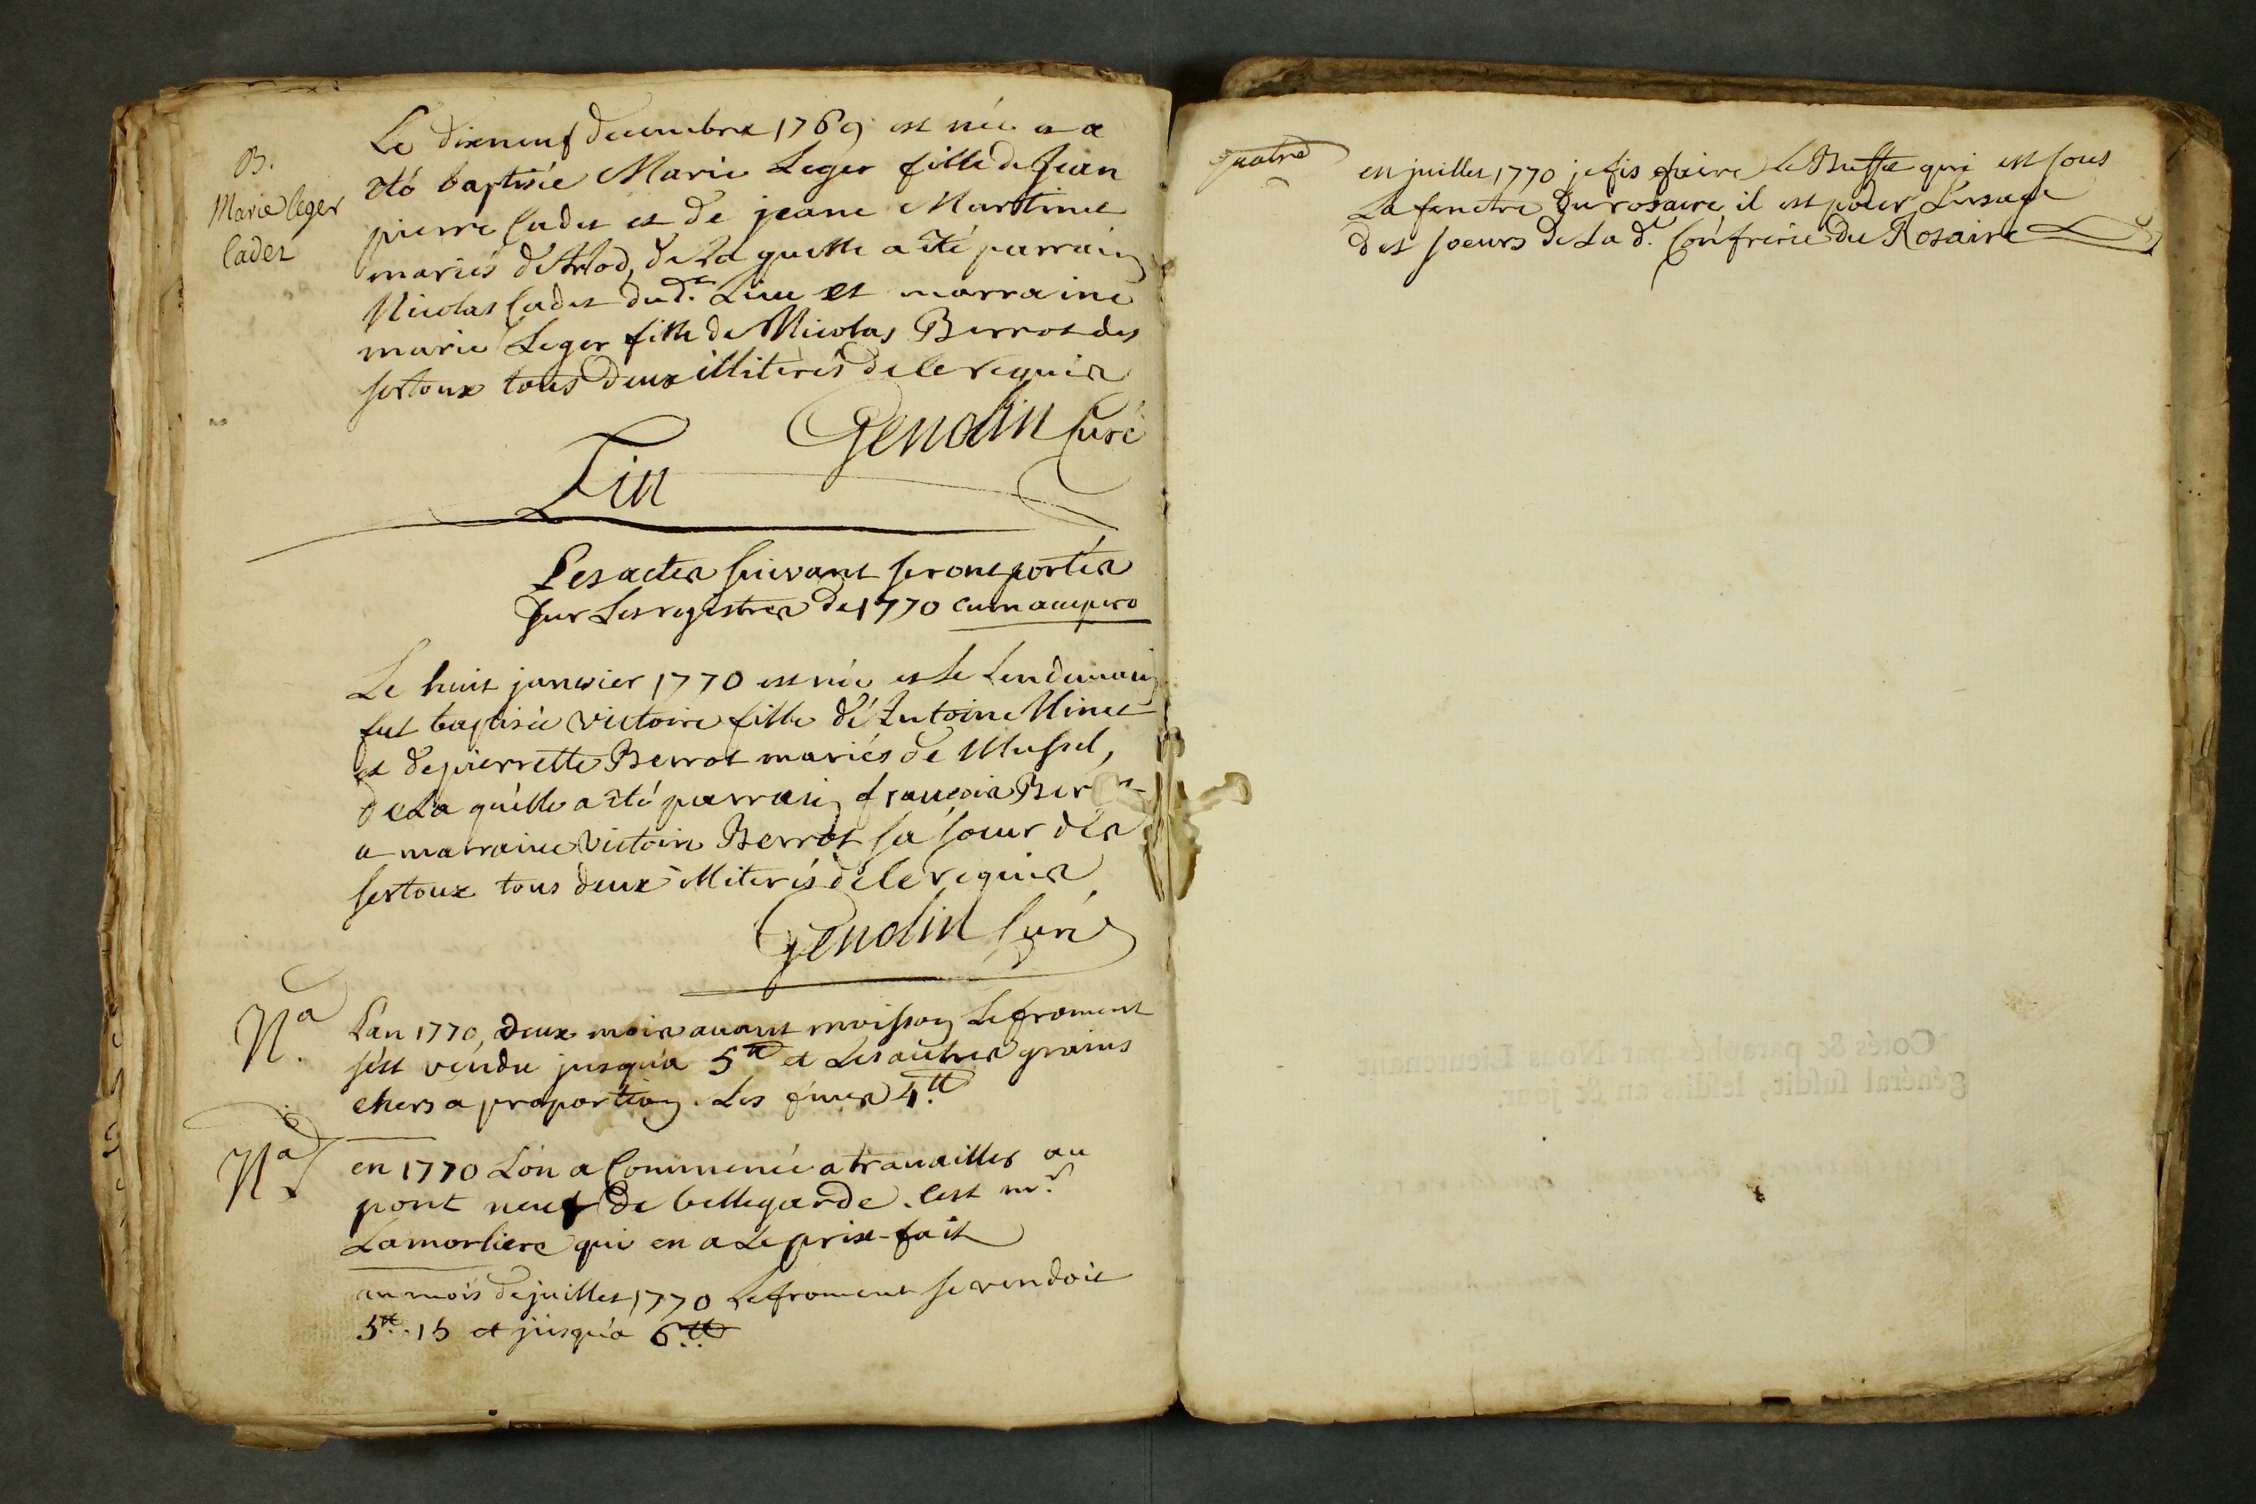 B.
Marie leger
Cadet
Le dixneuf decembre 1769 est née et a
été baptisée Marie Leger fille de Jean
pierre Cadet et de jeane Martinet
mariés d'Arlod, de la quelle a été parrain
Nicolas Cadet dud.t Lieu et marraine
marie Leger fille de Nicolas Berrot des
sertoux tous deux illiterés de ce requis
Gendin Curé
Fin
Les actes suivant seront portés
sur Les registres de 1770
Le huit janvier 1770 est née et le Lendemain
fut baptisée victoire fille d'Antoine Minet
et de pierrette Berrot mariés de Mussel,
de La quelle a été parrain françois
et marraine Victoire Berrot sa soeur des
sertoux tous deux illiterés de ce requis
Gendin Curé
N.a
L'an 1770, deux mois avant moisson Le froment
s'est vendu jusqu'a 5tt et Les autres grains
chers a proportion. Les feves 4.tt
N.a
en 1770 L'on a Commencé a travailler au
pont neuf de bellegarde. C'est mr.
Lamorliere qui en a Le prix-fait
au mois de juillet 1770 Le froment se vendoit
5tt. 15 et jusqu'a 6tt
quatre
en juillet 1770 je fis faire Le Buffet qui est sous
La fenetre du rosaire, il est pour L'usage
des soeurs de La d.e Confrerie du Rosaire
Cotés & paraphés par Nous Lieutenant
général susdit, lesdits an & jour.